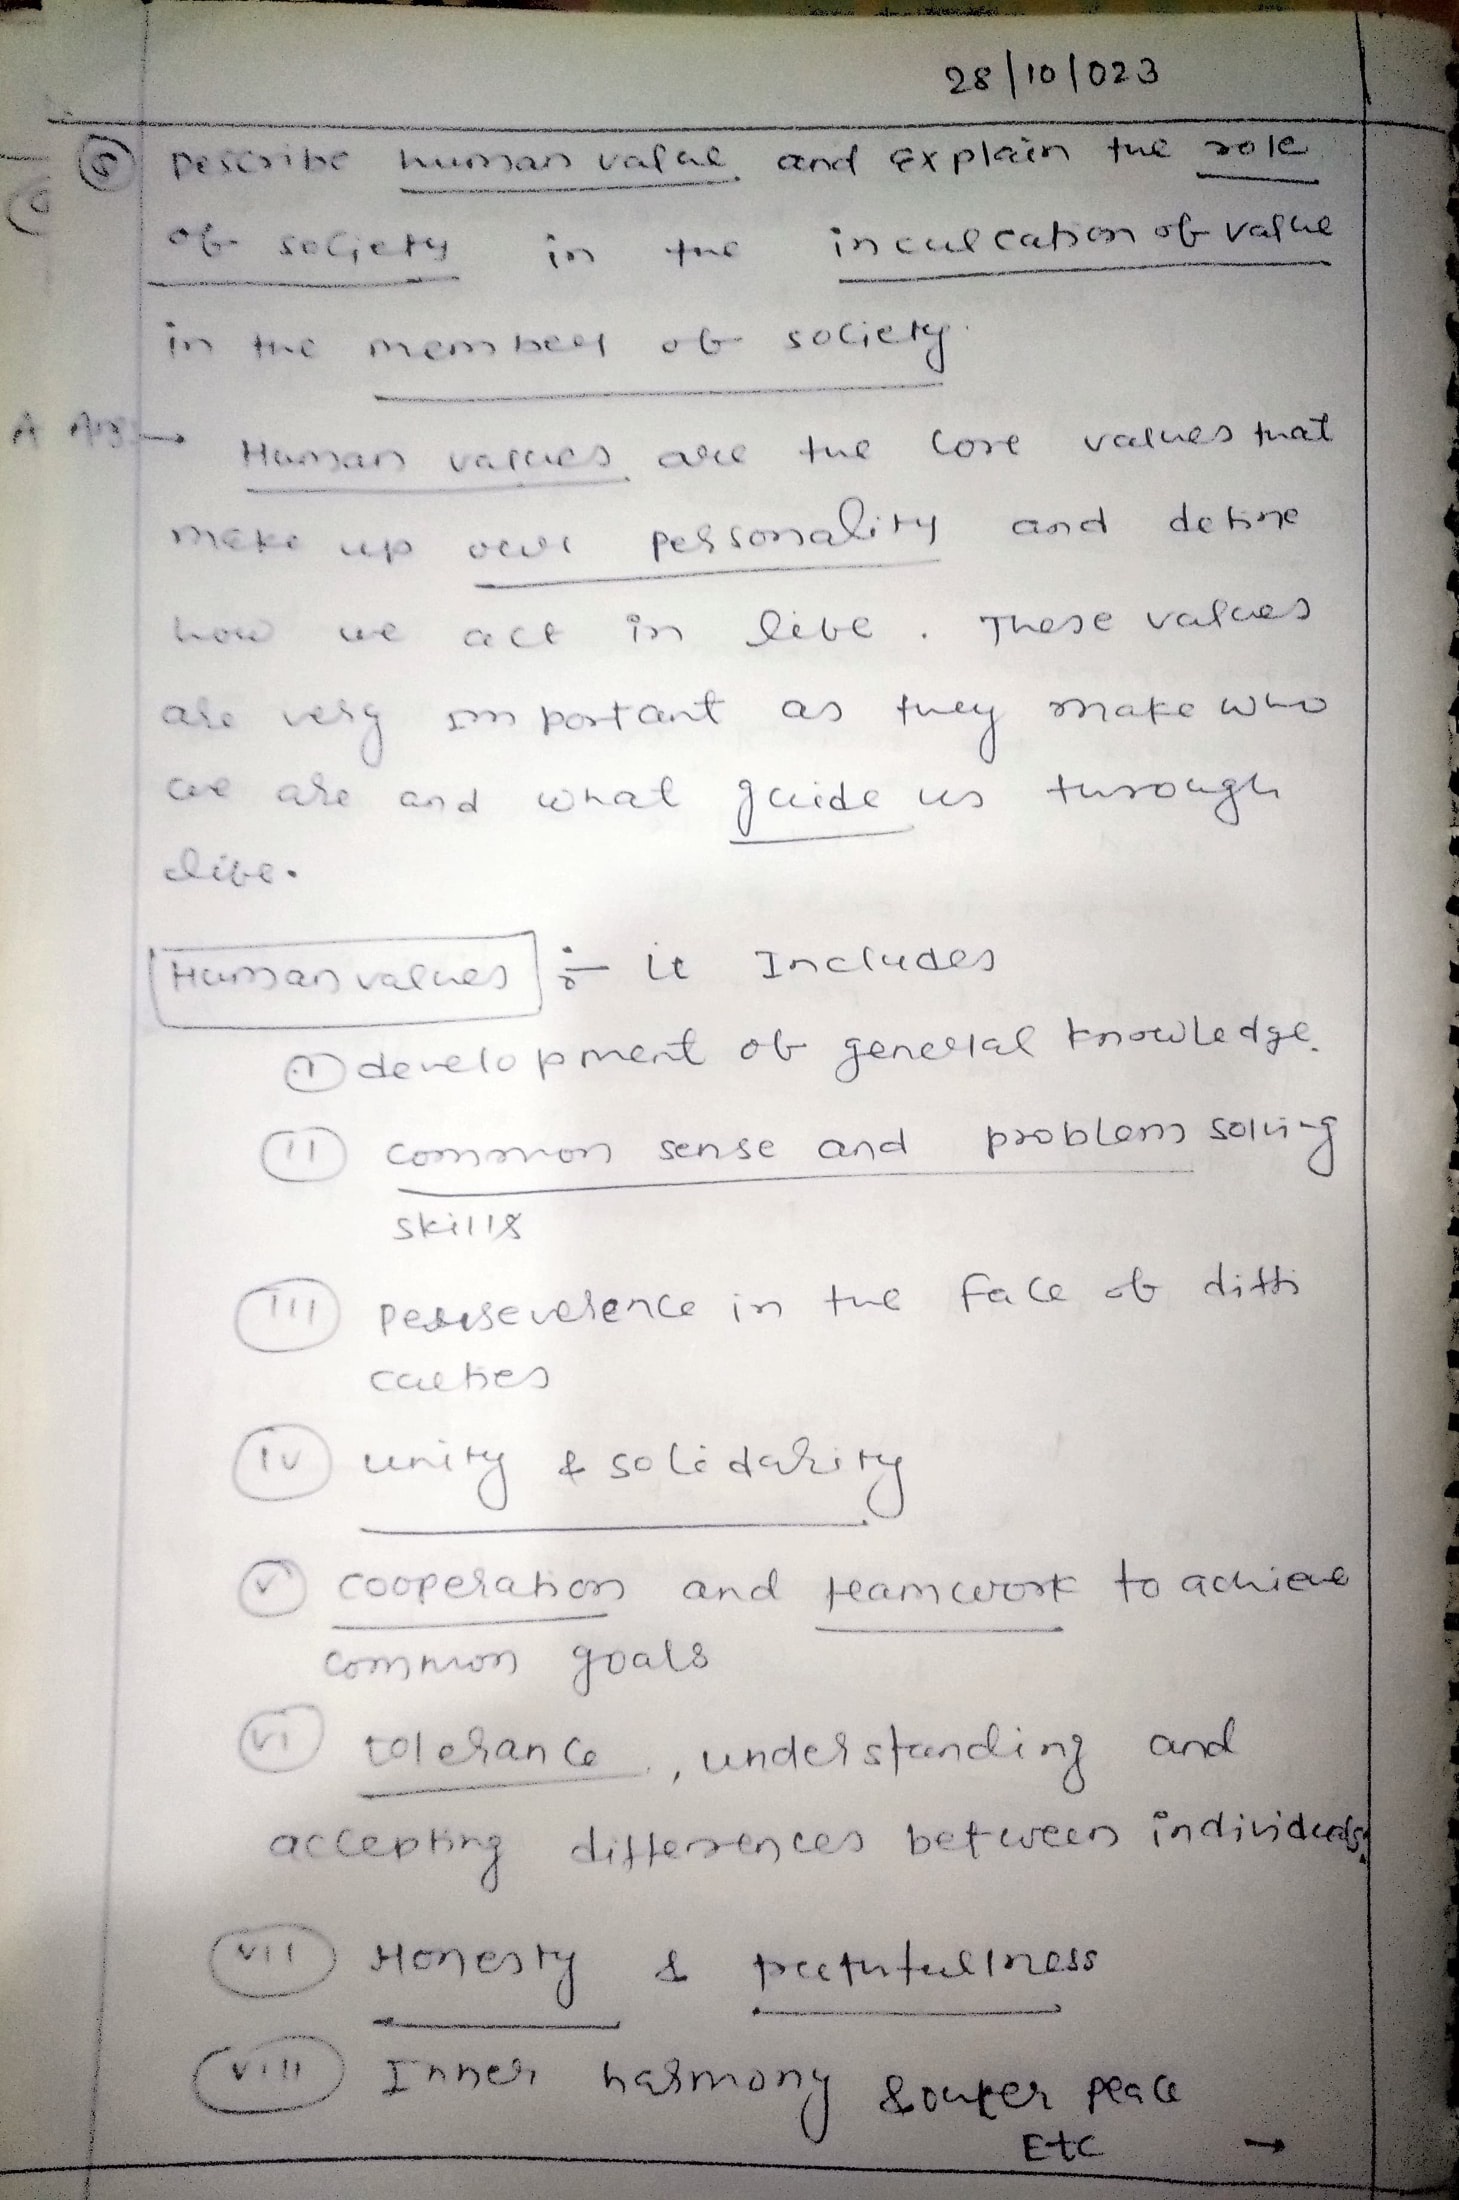 28/10/023
⑤ Describe human value and Explain the role
of society in the inculcation of value
in the members of society.
Ans → Human values are the core values that
make up our personality and define
how we act in life. These values
are very important as they make who
we are and what guide us through
life.
Human values :- it Includes
(i) development of general knowledge.
(ii) common sense and problem solving
skills
(iii) perseverence in the face of diffi
culties
(iv) unity & solidarity
(v) cooperation and teamwork to achieve
common goals
(vi) tolerance, understanding and
accepting differences between individuals
(vii) Honesty & truthfullness
(viii) Inner harmony & outer peace
Etc →